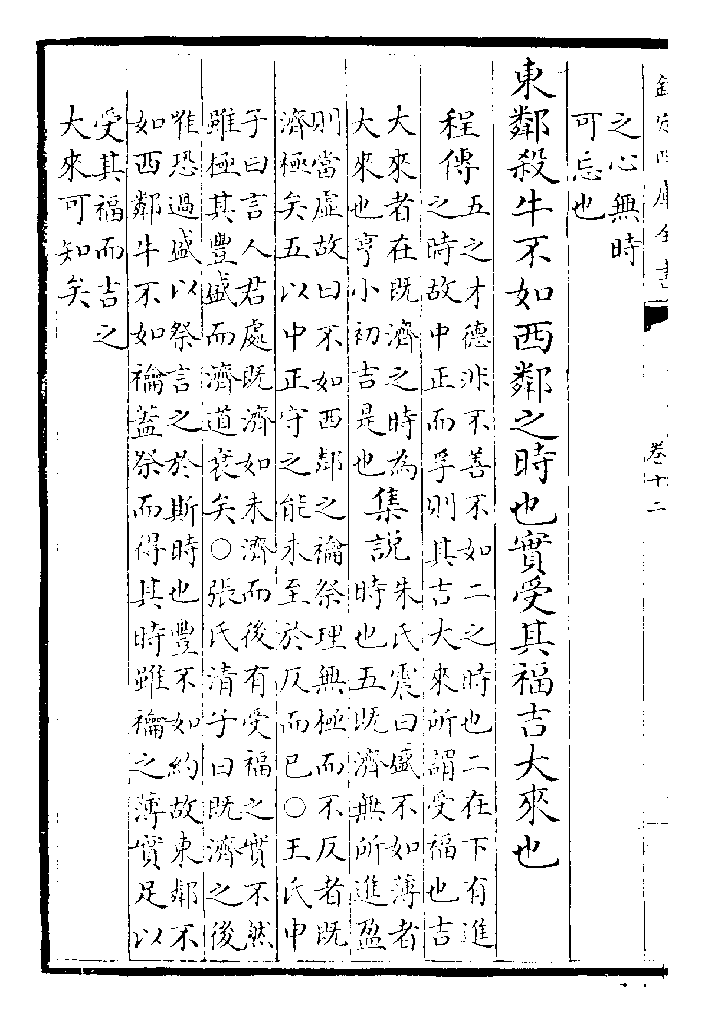 欽定四庫全書
卷十二
之心無時
可忘也
東鄰殺牛不如西鄰之時也實受其福吉大來也
程傳
五之才德非不善不如二之時也二在下有進
之時故中正而孚則其吉大來所謂受福也吉
大來者在既濟之時為
大來也亨小初吉是也
集說
朱氏震曰盛不如薄者
時也五既濟無所進盈
則當虛故曰不如西鄰之禴祭理無極而不反者既
濟極矣五以中正守之能未至於反而已○王氏申
子曰言人君處既濟如未濟而後有受福之實不然
雖極其豐盛而濟道衰矣○張氏清子曰既濟之後
唯恐過盛以祭言之於斯時也豐不如約故東鄰不
如西鄰牛不如禴蓋祭而得其時雖禴之薄實足以
受其福而吉之
大來可知矣